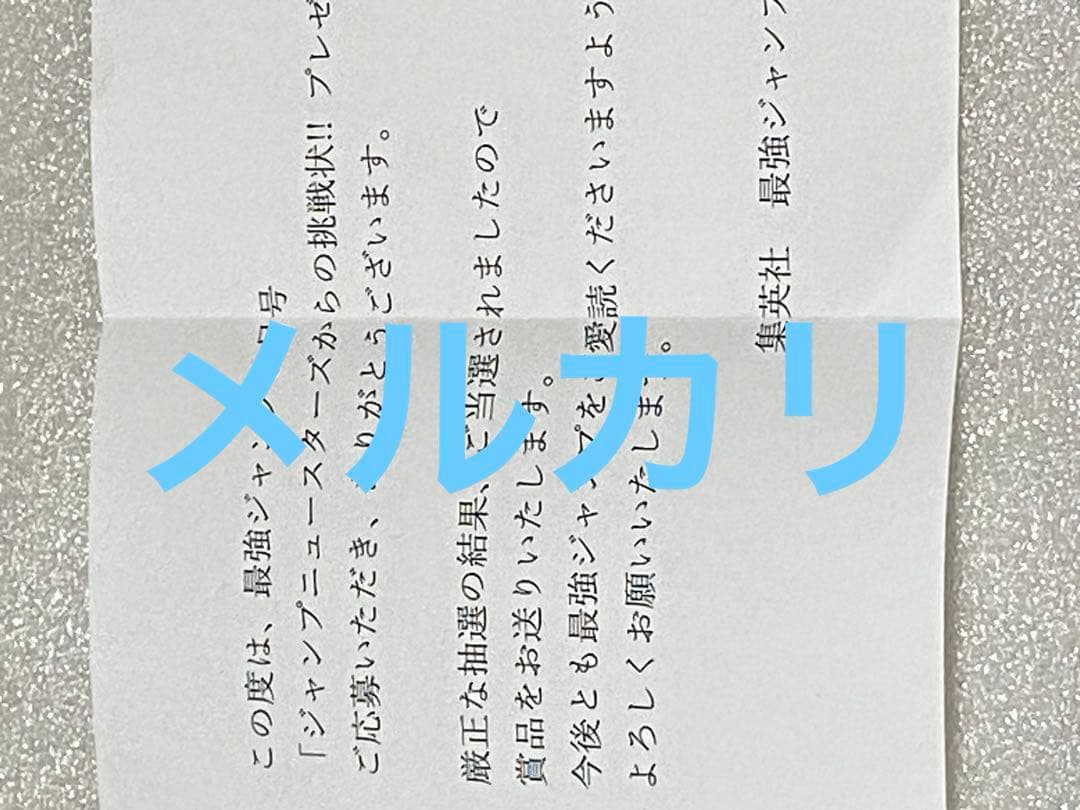 この度は、最強ジャンプ 号
「ジャンプニュースターズからの挑戦状!! プレゼ
ご応募いただき、ありがとうございます。
厳正な抽選の結果、ご当選されましたので
賞品をお送りいたします。
今後とも最強ジャンプをご愛読くださいますよう
よろしくお願いいたします。
集英社 最強ジャンプ
メルカリ